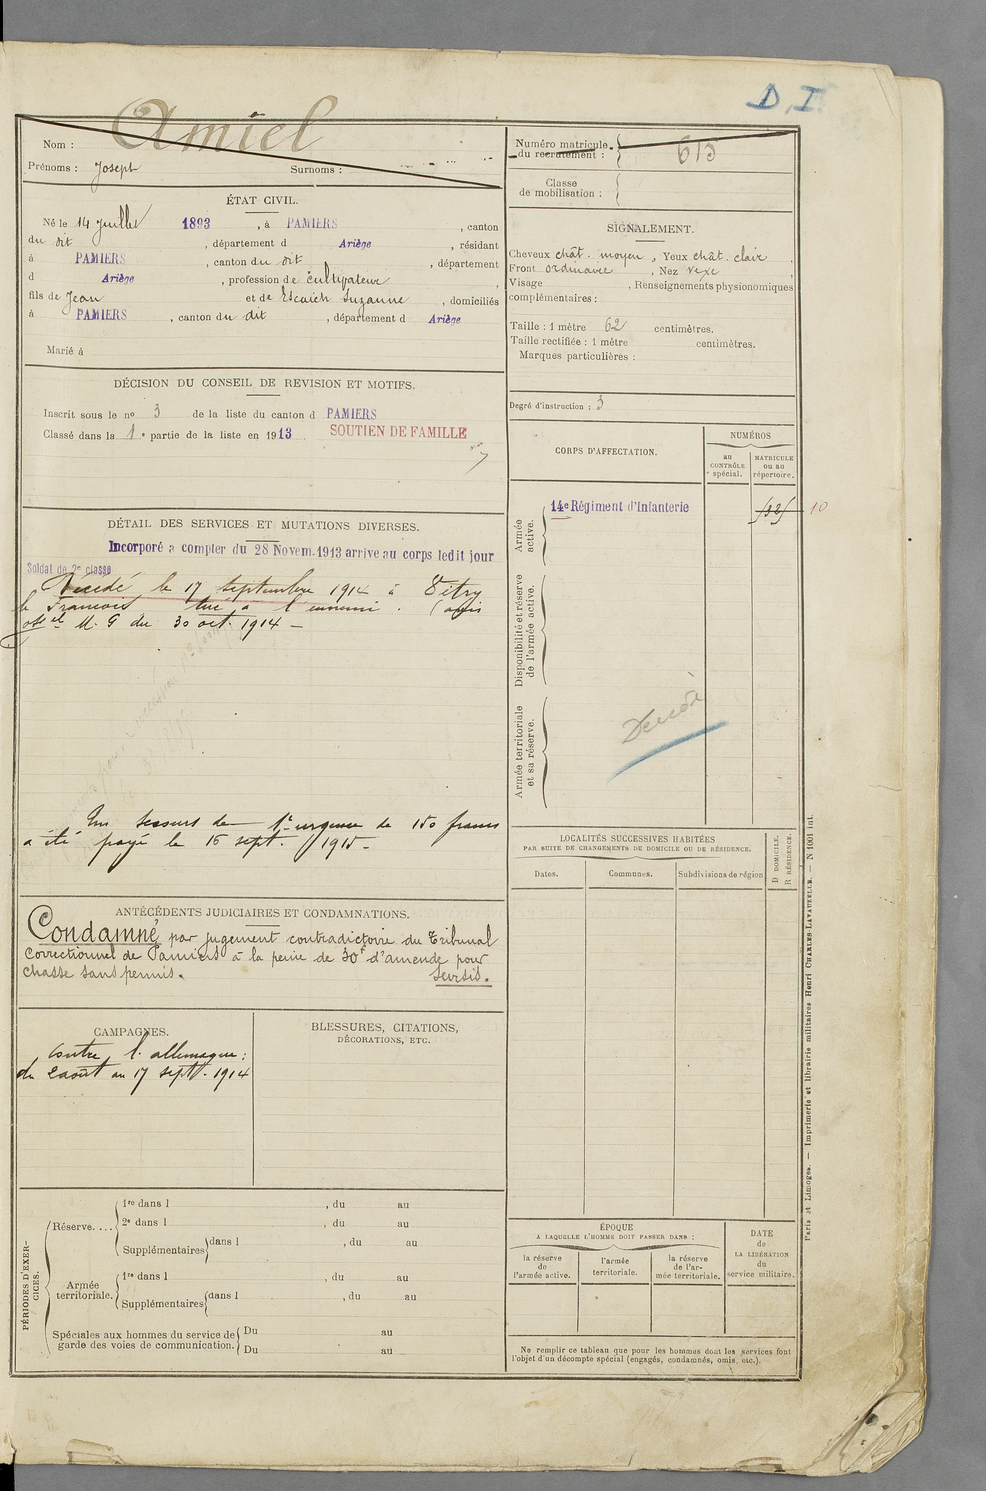 D.I.
Amiel
Nom :
Prénoms : Joseph Surnoms :
Numéro matricule du recrutement : 615
Classe de mobilisation :
ÉTAT CIVIL.
Né le 14 Juillet 1893, à PAMIERS, canton
du dit, département d Ariège, résidant
à PAMIERS, canton du dit, département
d Ariège, profession de cultivateur,
fils de Jean et de Escaich Suzanne, domiciliés
à PAMIERS, canton du dit, département d Ariège
Marié à
SIGNALEMENT.
Cheveux chât. moyen, Yeux chât. clair,
Front ordinaire, Nez vexe,
Visage , Renseignements physionomiques
complémentaires :
Taille : 1 mètre 62 centimètres.
Taille rectifiée : 1 mètre centimètres.
Marques particulières :
Degré d'instruction : 3
DÉCISION DU CONSEIL DE REVISION ET MOTIFS.
Inscrit sous le no 3 de la liste du canton d PAMIERS
Classé dans la 1e partie de la liste en 1913 SOUTIEN DE FAMILLE
DÉTAIL DES SERVICES ET MUTATIONS DIVERSES.
Incorporé à compter du 28 Novem. 1913 arrive au corps ledit jour
Soldat de 2e classe
Décédé le 17 septembre 1914 à Vitry
le François tué à l'ennemi. (avis
offel M. G du 30 oct. 1914 —
Un secours de 1e urgence de 150 francs
a été payé le 15 sept. 1915 -
ANTÉCÉDENTS JUDICIAIRES ET CONDAMNATIONS.
Condamné par jugement contradictoire du Tribunal
Correctionnel de Pamiers à la peine de 30f d'amende pour
chasse sans permis. Sursis.
CAMPAGNES.
Contre l'allemagne :
du 2 août au 17 sept. 1914
BLESSURES, CITATIONS,
DÉCORATIONS, ETC.
PÉRIODES D'EXERCICES.
Réserve....
1re dans l , du au
2e dans l , du au
Supplémentaires dans l , du au
Armée territoriale.
1re dans l , du au
Supplémentaires dans l , du au
Spéciales aux hommes du service de
garde des voies de communication.
Du au
Du au
CORPS D'AFFECTATION.
NUMÉROS
au CONTRÔLE spécial.
MATRICULE ou au répertoire.
Armée active.
14e Régiment d'Infanterie
10
Disponibilité et réserve de l'armée active.
Armée territoriale et sa réserve.
Décédé
LOCALITÉS SUCCESSIVES HABITÉES
PAR SUITE DE CHANGEMENTS DE DOMICILE OU DE RÉSIDENCE.
Dates.
Communes.
Subdivisions de région
D DOMICILE.
R RÉSIDENCE.
ÉPOQUE
A LAQUELLE L'HOMME DOIT PASSER DANS :
la réserve de l'armée active.
l'armée territoriale.
la réserve de l'armée territoriale.
DATE de LA LIBÉRATION du service militaire.
Ne remplir ce tableau que pour les hommes dont les services font
l'objet d'un décompte spécial (engagés, condamnés, omis, etc.).
Paris et Limoges. — Imprimerie et librairie militaires Henri CHARLES-LAVAUZELLE. — N 1001 int.